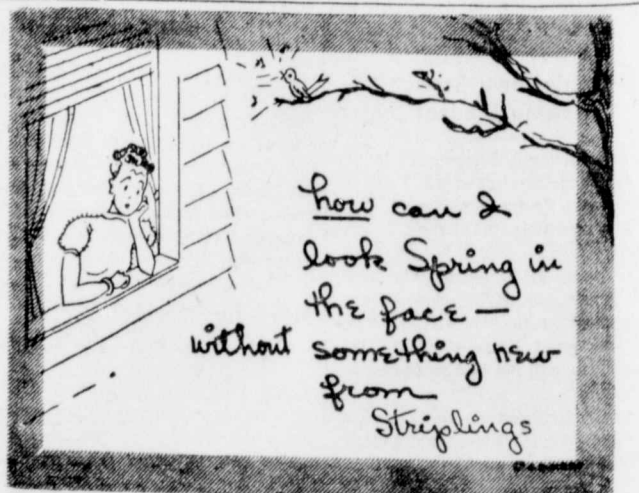 how can I
look Spring in
the face —
without something new
from
Striplings